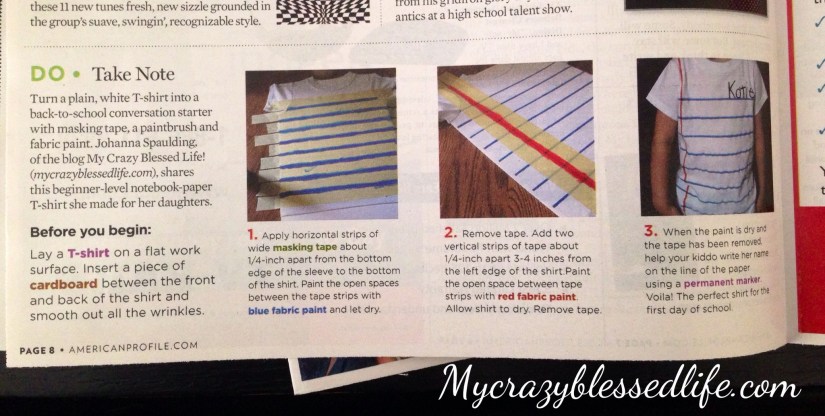 these 11 new tunes fresh, new sizzle grounded in
the group's suave, swingin', recognizable style.
antics at a high school talent show.
DO • Take Note
Turn a plain, white T-shirt into a
back-to-school conversation starter
with masking tape, a paintbrush and
fabric paint. Johanna Spaulding,
of the blog My Crazy Blessed Life!
(mycrazyblessedlife.com), shares
this beginner-level notebook-paper
T-shirt she made for her daughters.
Before you begin:
Lay a T-shirt on a flat work
surface. Insert a piece of
cardboard between the front
and back of the shirt and
smooth out all the wrinkles.
1. Apply horizontal strips of
wide masking tape about
1/4-inch apart from the bottom
edge of the sleeve to the bottom
of the shirt. Paint the open spaces
between the tape strips with
blue fabric paint and let dry.
2. Remove tape. Add two
vertical strips of tape about
1/4-inch apart 3-4 inches from
the left edge of the shirt.Paint
the open space between tape
strips with red fabric paint.
Allow shirt to dry. Remove tape.
3. When the paint is dry and
the tape has been removed,
help your kiddo write her name
on the line of the paper
using a permanent marker.
Voila! The perfect shirt for the
first day of school.
PAGE 8 • AMERICANPROFILE.COM
Mycrazyblessedlife.com